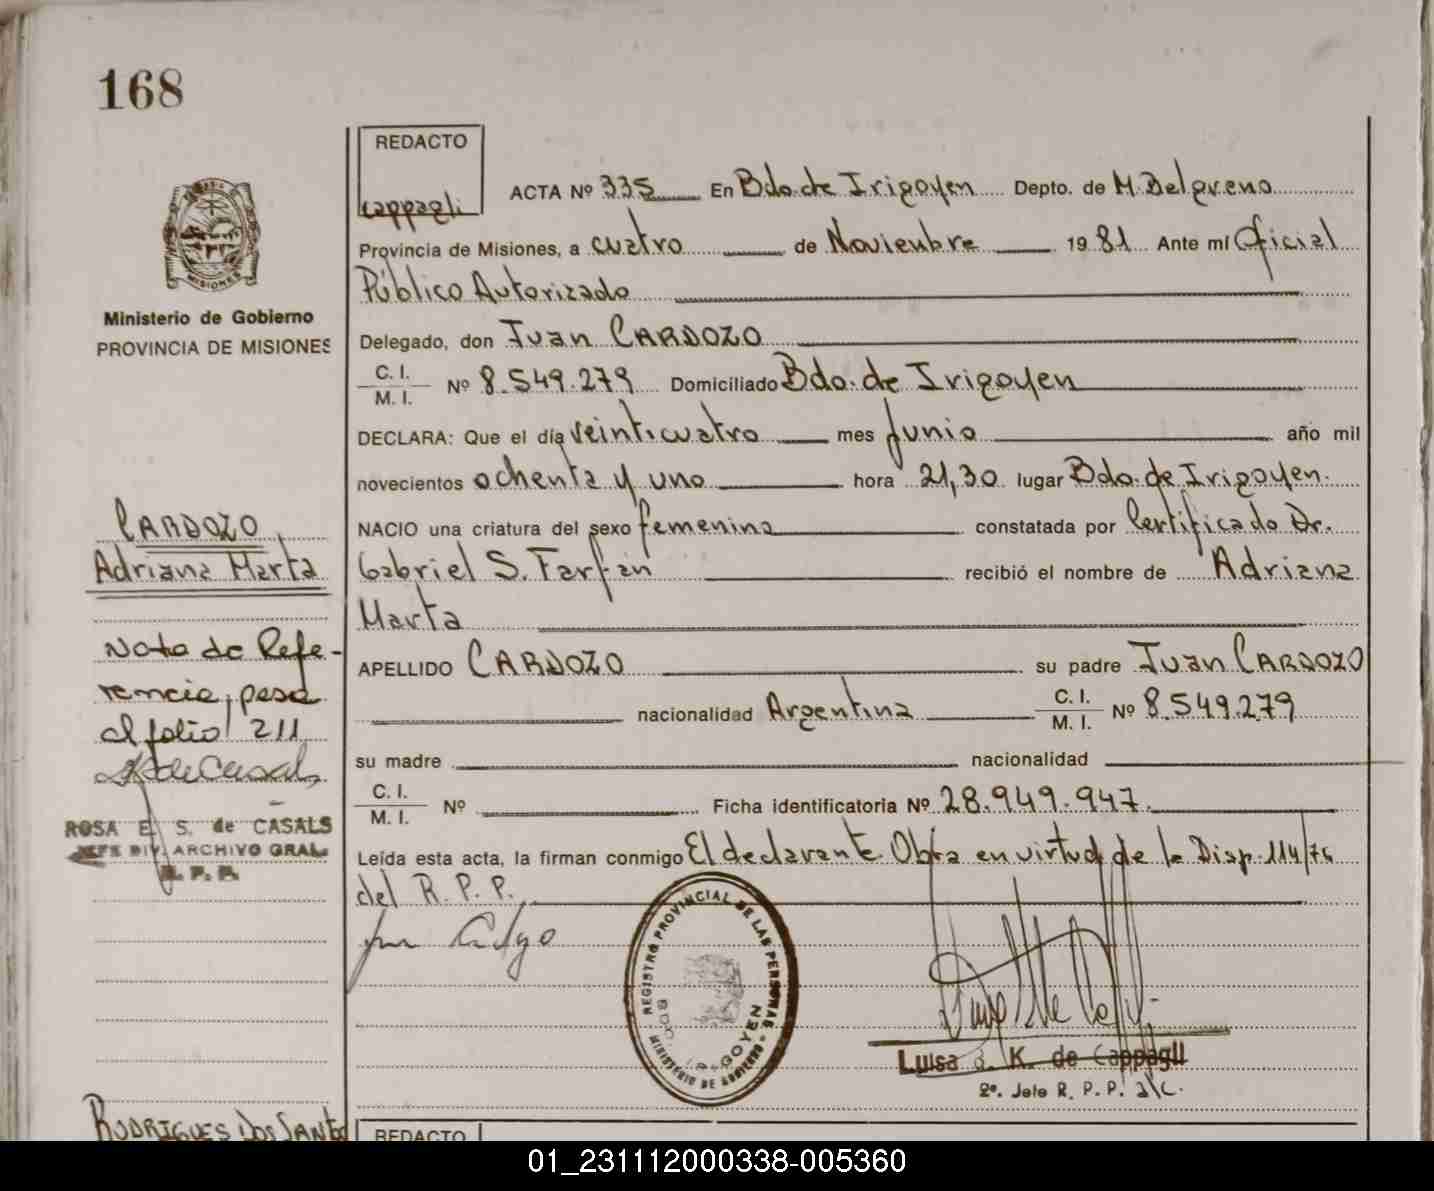 168
REDACTO
cappagli
ACTA Nº 335 En Bdo. de Irigoyen Depto. de M. Belgrano
Provincia de Misiones, a cuatro de Noviembre 1981 Ante mí Oficial
Público Autorizado
Delegado, don Juan CARDOZO
C. I.
M. I. Nº 8.549.279 Domiciliado Bdo. de Irigoyen
DECLARA: Que el día veinticuatro mes Junio año mil
novecientos ochenta y uno hora 21,30 lugar Bdo. de Irigoyen.
NACIO una criatura del sexo femenino constatada por Certificado Dr.
Gabriel S. Farfan recibió el nombre de Adriana
Marta
APELLIDO CARDOZO su padre Juan CARDOZO
nacionalidad Argentina C. I.
M. I. Nº 8.549.279
su madre nacionalidad
C. I.
M. I. Nº Ficha identificatoria Nº 28.949.947.
Leída esta acta, la firman conmigo El declarante. Obra en virtud de la Disp. 114/76
del R. P. P.
REGISTRO PROVINCIAL DE LAS PERSONAS
MINISTERIO DE GOBIERNO
BDO. IRIGOYEN
Luisa K. de Cappagli
2º. Jefe R. P. P. a/c.
MISIONES
Ministerio de Gobierno
PROVINCIA DE MISIONES
CARDOZO,
Adriana Marta
Nota de Refe-
rencia, pasa
al folio 211
ROSA E. S. de CASALS
JEFE DIV. ARCHIVO GRAL.
R. P. P.
RODRIGUES DOS SANTOS
REDACTO
01_231112000338-005360